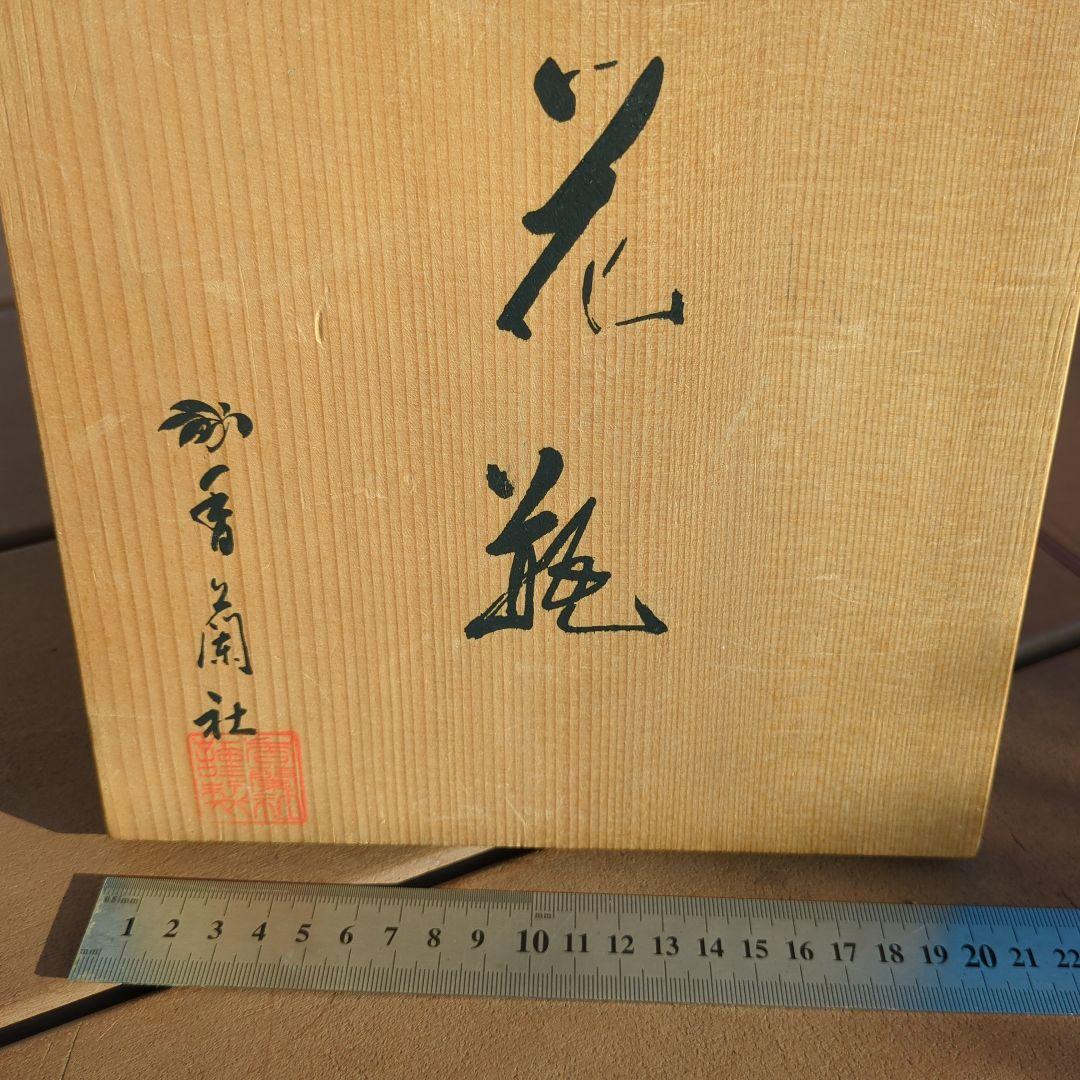 花瓶
香蘭社
香蘭社
謹製
0.5mm
mm
mm
1 2 3 4 5 6 7 8 9 10 11 12 13 14 15 16 17 18 19 20 21 22